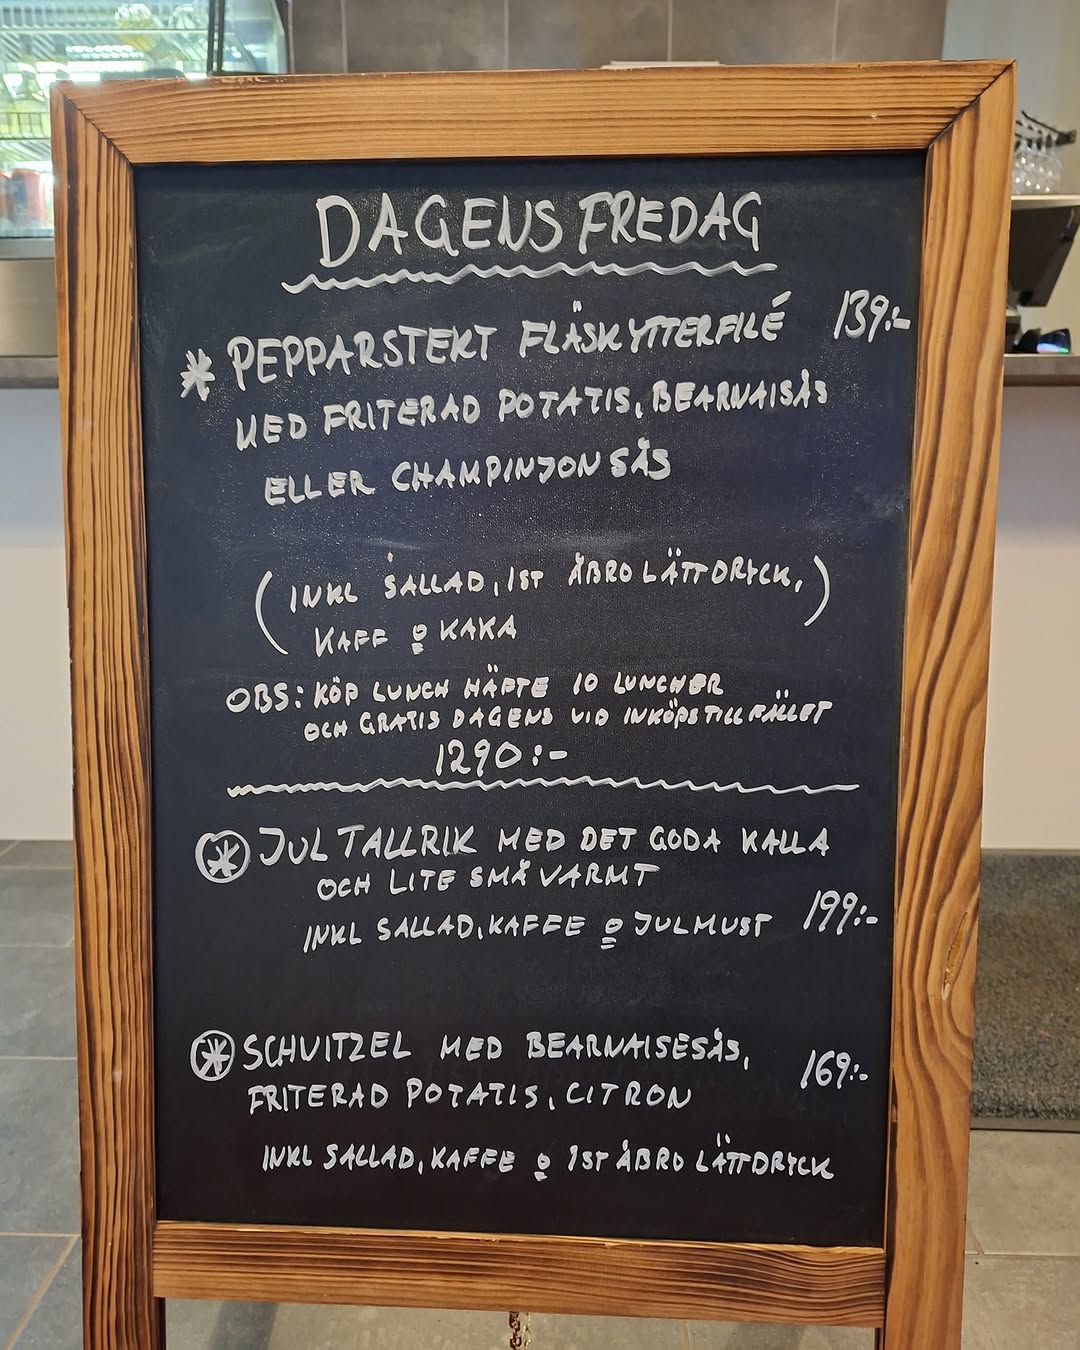 DAGENS FREDAG
* PEPPARSTEKT FLÄSKYTTERFILÉ 139:-
MED FRITERAD POTATIS, BEARNAISÅS
ELLER CHAMPINJON SÅS
(INKL SALLAD, 1ST ÅBRO LÄTTDRYCK,
KAFF o KAKA)
OBS: KÖP LUNCH HÄFTE 10 LUNCHER
OCH GRATIS DAGENS VID INKÖPSTILLFÄLLET
1290:-
* JUL TALLRIK MED DET GODA KALLA
OCH LITE SMÅ VARMT
INKL SALLAD, KAFFE o JULMUST 199:-
* SCHNITZEL MED BEARNAISESÅS,
FRITERAD POTATIS, CITRON 169:-
INKL SALLAD, KAFFE o 1ST ÅBRO LÄTTDRYCK